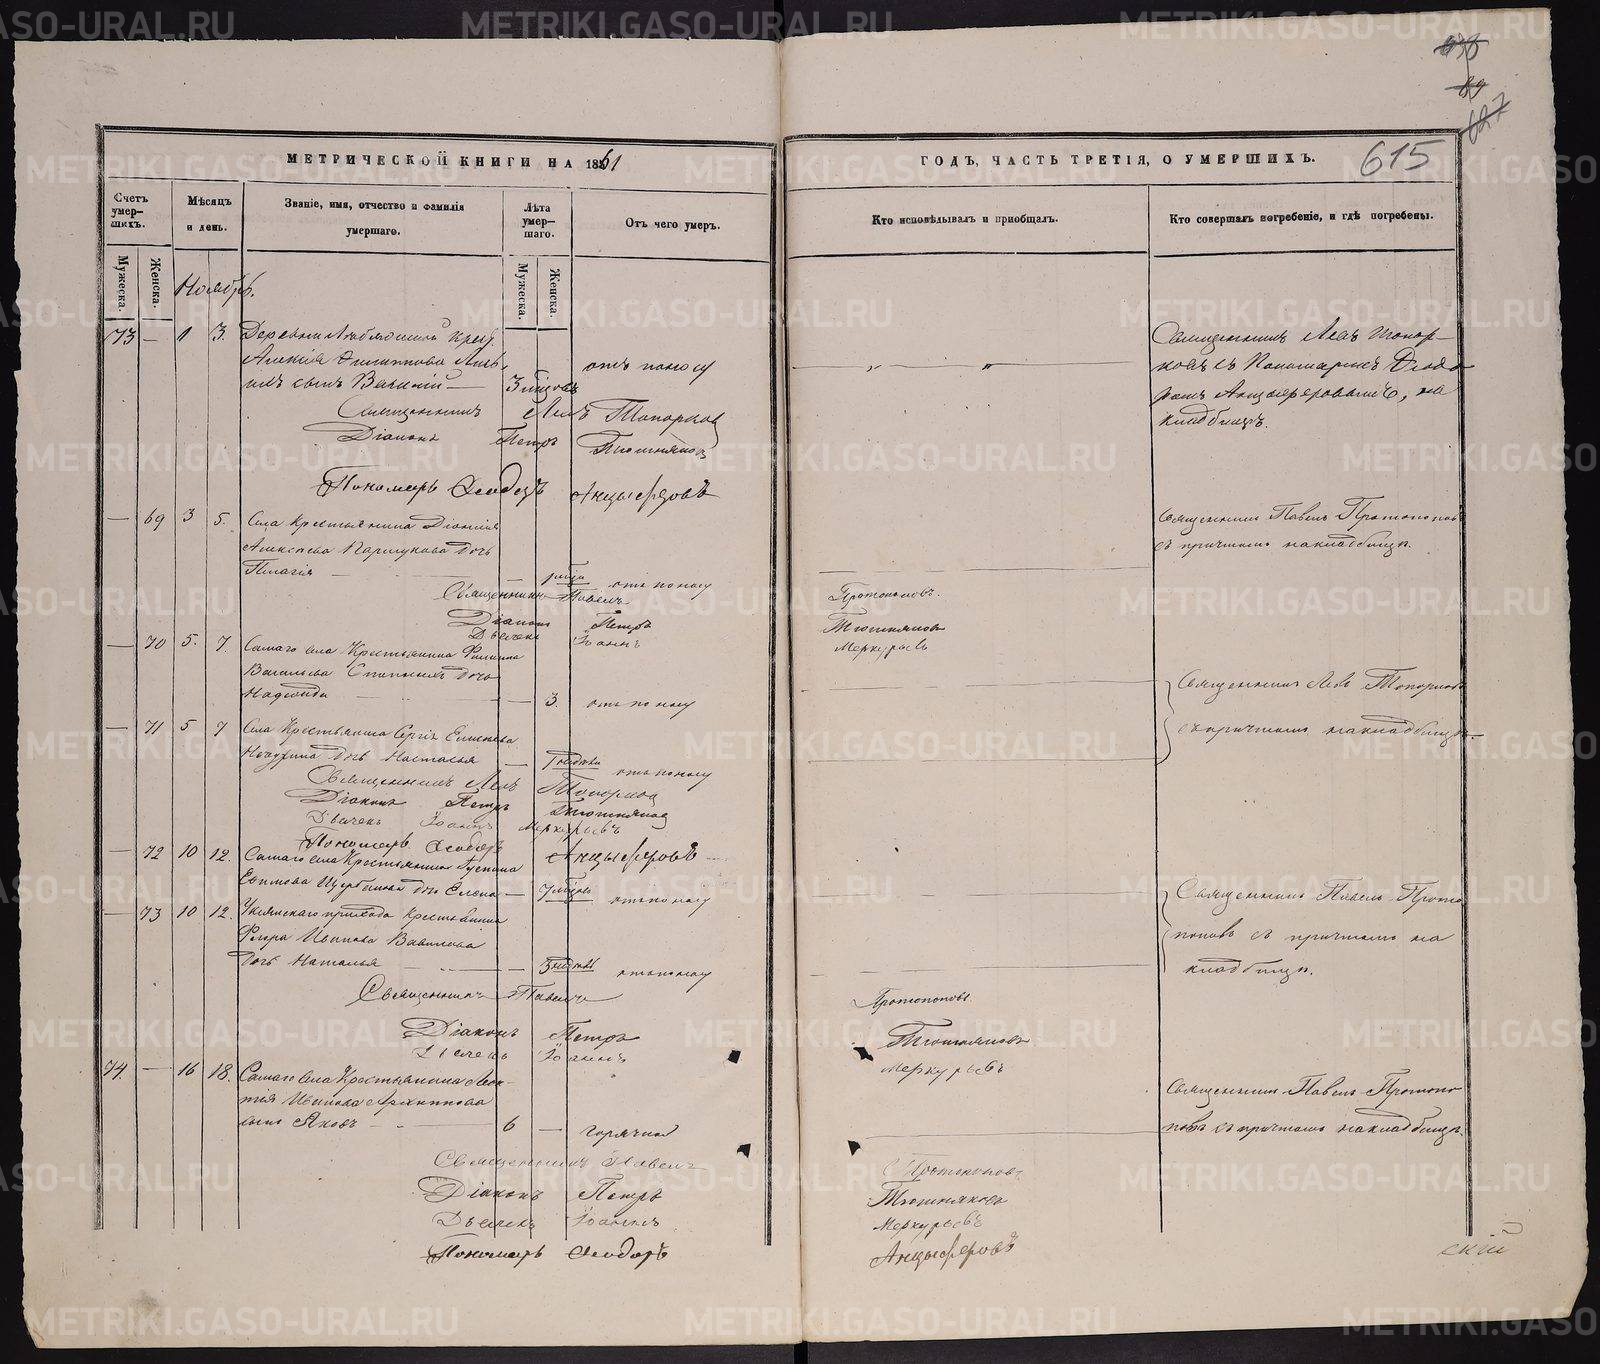 638
89
627
МЕТРИЧЕСКОЙ КНИГИ НА 1861
ГОДЪ, ЧАСТЬ ТРЕТІЯ, О УМЕРШИХЪ.
615
Счетъ умер-шихъ.
Мѣсяцъ и день.
Званіе, имя, отчество и фамилія умершаго.
Лѣта умер-шаго.
Отъ чего умеръ.
Кто исповѣдывалъ и пріобщалъ.
Кто совершалъ погребеніе, и гдѣ погребены.
Мужеска.
Женска.
Мужеска.
Женска.
Ноябрь.
73 — 1 3. Деревни Крест.
Алексія Филиппова
сынъ Василій — 3 мѣсяц. отъ поносу
Священникъ Левъ Топор-
ковъ съ Пономаремъ Ѳеодо
ромъ Анцыферовымъ, на
кладбищѣ.
Священникъ Левъ Топорковъ
Діаконъ Петръ Тюшняковъ
Пономарь Ѳеодоръ Анцыферовъ
— 69 3 5. Села Крестьянина Діонисія
Алексѣева дочь
Пелагія — отъ поносу
Священникъ Павелъ Протопоповъ
съ причтомъ на кладбищѣ.
Священникъ Павелъ Протопоповъ.
Діаконъ Петръ Тюшняковъ
Дьячекъ Іоаннъ Меркурьевъ
— 70 5. 7. Самаго села Крестьянина Филиппа
Васильева дочь
Надежда — 3. отъ поносу
Священникъ Левъ Топорковъ
съ причтомъ на кладбищѣ.
— 71 5 7 Села Крестьянина Сергія
дочь Настасья — отъ поносу
Священникъ Левъ Топорковъ
Діаконъ Петръ Тюшняковъ
Дьячекъ Іоаннъ Меркурьевъ
Пономарь Ѳеодоръ Анцыферовъ
— 72 10 12. Самаго села Крестьянина
Ефимова Щербакова дочь Елена — отъ поносу
Священникъ Павелъ Прото
поповъ съ причтомъ на
кладбищѣ.
— 73 10 12. прихода Крестьянина
Флора Иванова Вавилова
дочь Наталья — отъ поносу
Священникъ Павелъ Протопоповъ
Діаконъ Петръ Тюшняковъ
Дьячекъ Іоаннъ Меркурьевъ
74. — 16 18. Самаго села Крестьянина Леон-
тія Иванова Архиппова
сынъ Яковъ — 6 — горячки
Священникъ Павелъ Протопо
повъ съ причтомъ на кладбищѣ.
Священникъ Павелъ Протопоповъ
Діаконъ Петръ Тюшняковъ
Дьячекъ Іоаннъ Меркурьевъ
Пономарь Ѳеодоръ Анцыферовъ
скій
METRIKI.GASO-URAL.RU